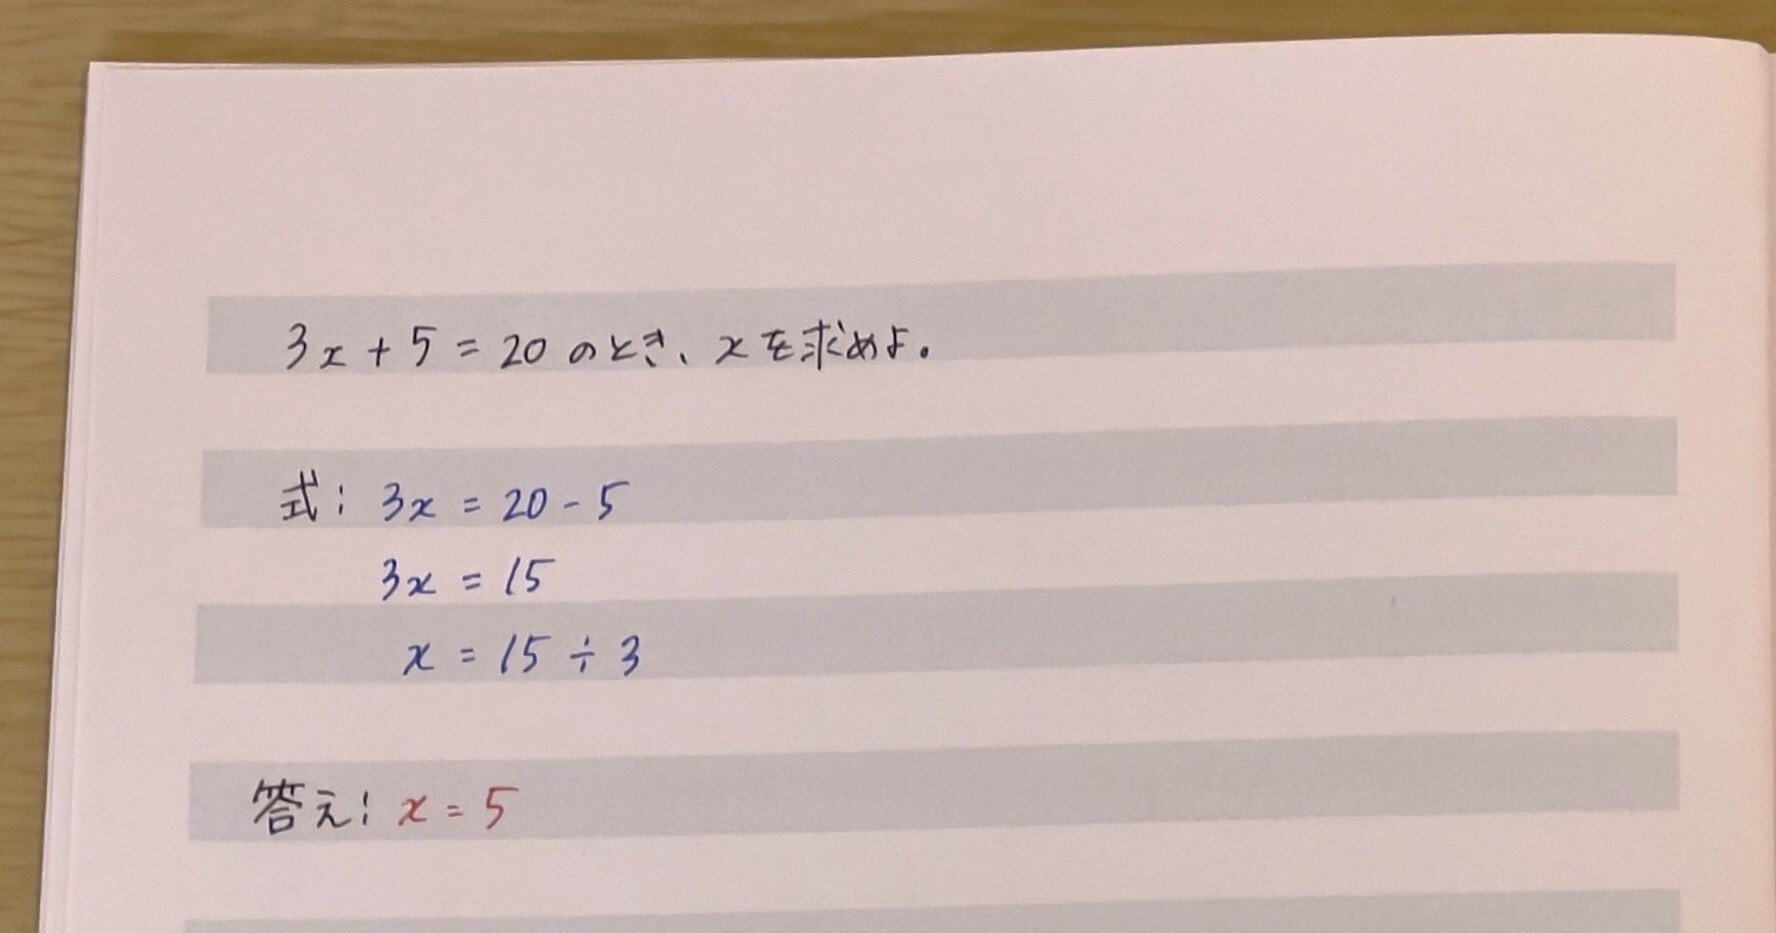 3x + 5 = 20 のとき、xを求めよ。
式: 3x = 20 - 5
3x = 15
x = 15 ÷ 3
答え: x = 5